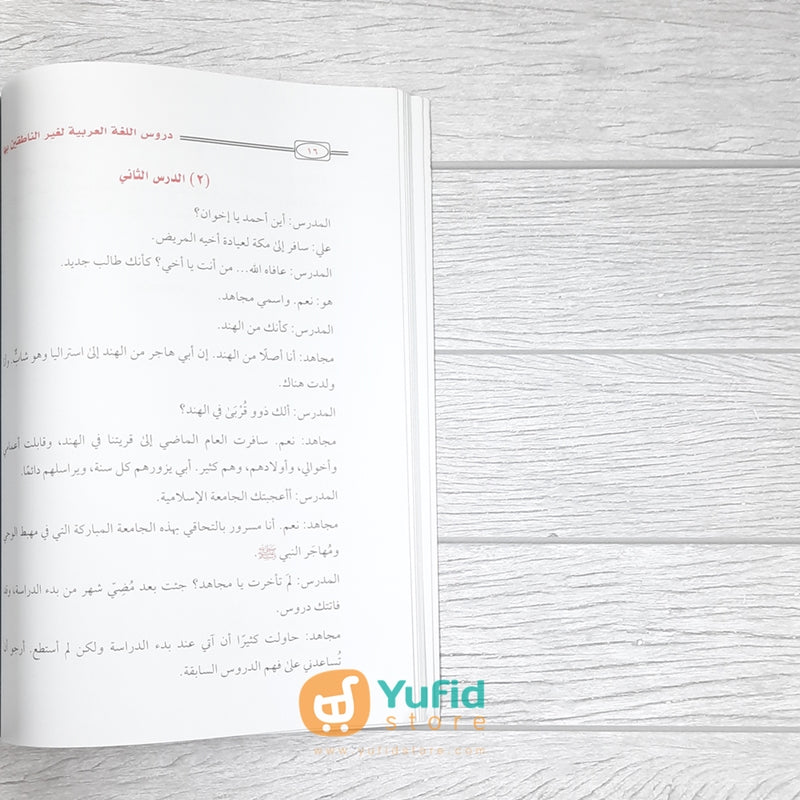 دروس اللغة العربية لغير الناطقين بها
١٦
(٢) الدرس الثاني
المدرس: أين أحمد يا إخوان؟
علي: سافر إلى مكة لعيادة أخيه المريض.
المدرس: عافاه الله... من أنت يا أخي؟ كأنك طالب جديد.
هو: نعم. واسمي مجاهد.
المدرس: كأنك من الهند.
مجاهد: أنا أصلًا من الهند. إن أبي هاجر من الهند إلى استراليا وهو شابٌّ.
ولدت هناك.
المدرس: ألك ذوو قُرْبَىٰ في الهند؟
مجاهد: نعم. سافرت العام الماضي إلى قريتنا في الهند، وقابلت أعمامي
وأخوالي، وأولادهم، وهم كثير. أبي يزورهم كل سنة، ويراسلهم دائمًا.
المدرس: أأعجبتك الجامعة الإسلامية.
مجاهد: نعم. أنا مسرور بالتحاقي بهذه الجامعة المباركة التي في مهبط الوحي
ومُهاجَر النبي ﷺ.
المدرس: لمَ تأخرت يا مجاهد؟ جئت بعد مُضِيّ شهر من بدء الدراسة،
فاتتك دروس.
مجاهد: حاولت كثيرًا أن آتي عند بدء الدراسة ولكن لم أستطع. أرجو أن
تُساعدني على فهم الدروس السابقة.
Yufid
store
www.yufidstore.com